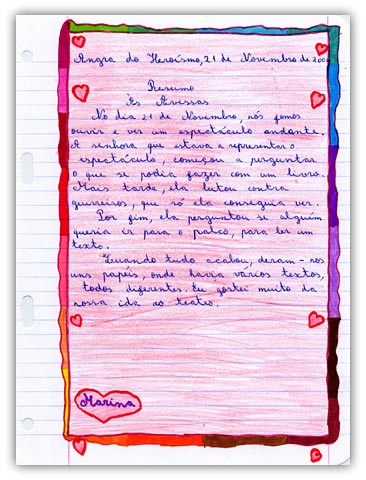 Angra do Heroísmo, 21 de Novembro de 200
Resumo
Às Avessas
No dia 21 de Novembro, nós fomos
ouvir e ver um espectáculo andante.
A senhora que estava a representar o
espectáculo, começou a perguntar
o que se podia fazer com um livro.
Mais tarde, ela lutou contra
guerreiros, que só ela conseguia ver.
Por fim, ela perguntou se alguém
queria ir para o palco, para ler um
texto.
Quando tudo acabou, deram-nos
uns papéis, onde havia vários textos,
todos diferentes. Eu gostei muito da
nossa ida ao teatro.
Marina